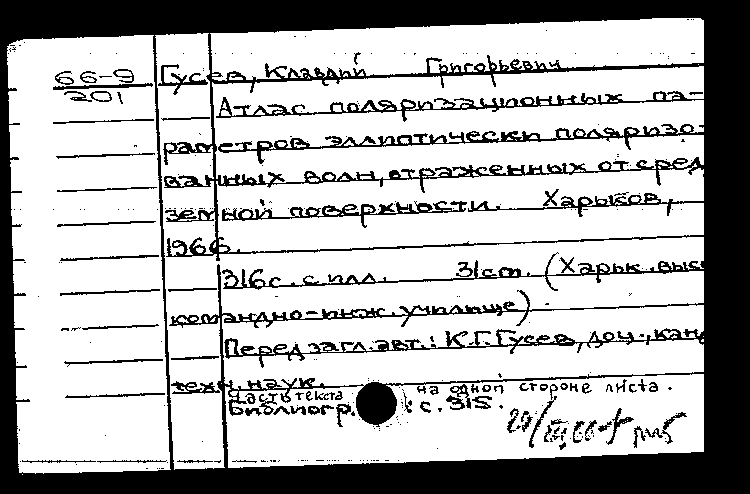 66-9 Гусев, Клавдий Григорьевич
201
Атлас поляризационных па-
раметров эллиптически поляризо-
ванных волн, отраженных от сред
земной поверхности. Харьков,
1966.
316 с. с илл. 31 см. (Харьк. высш
командно-инж. училище)
Перед загл. авт.: К.Г. Гусев, доц., канд
техн. наук.
Часть текста на одной стороне листа.
Библиогр. : с. 315.